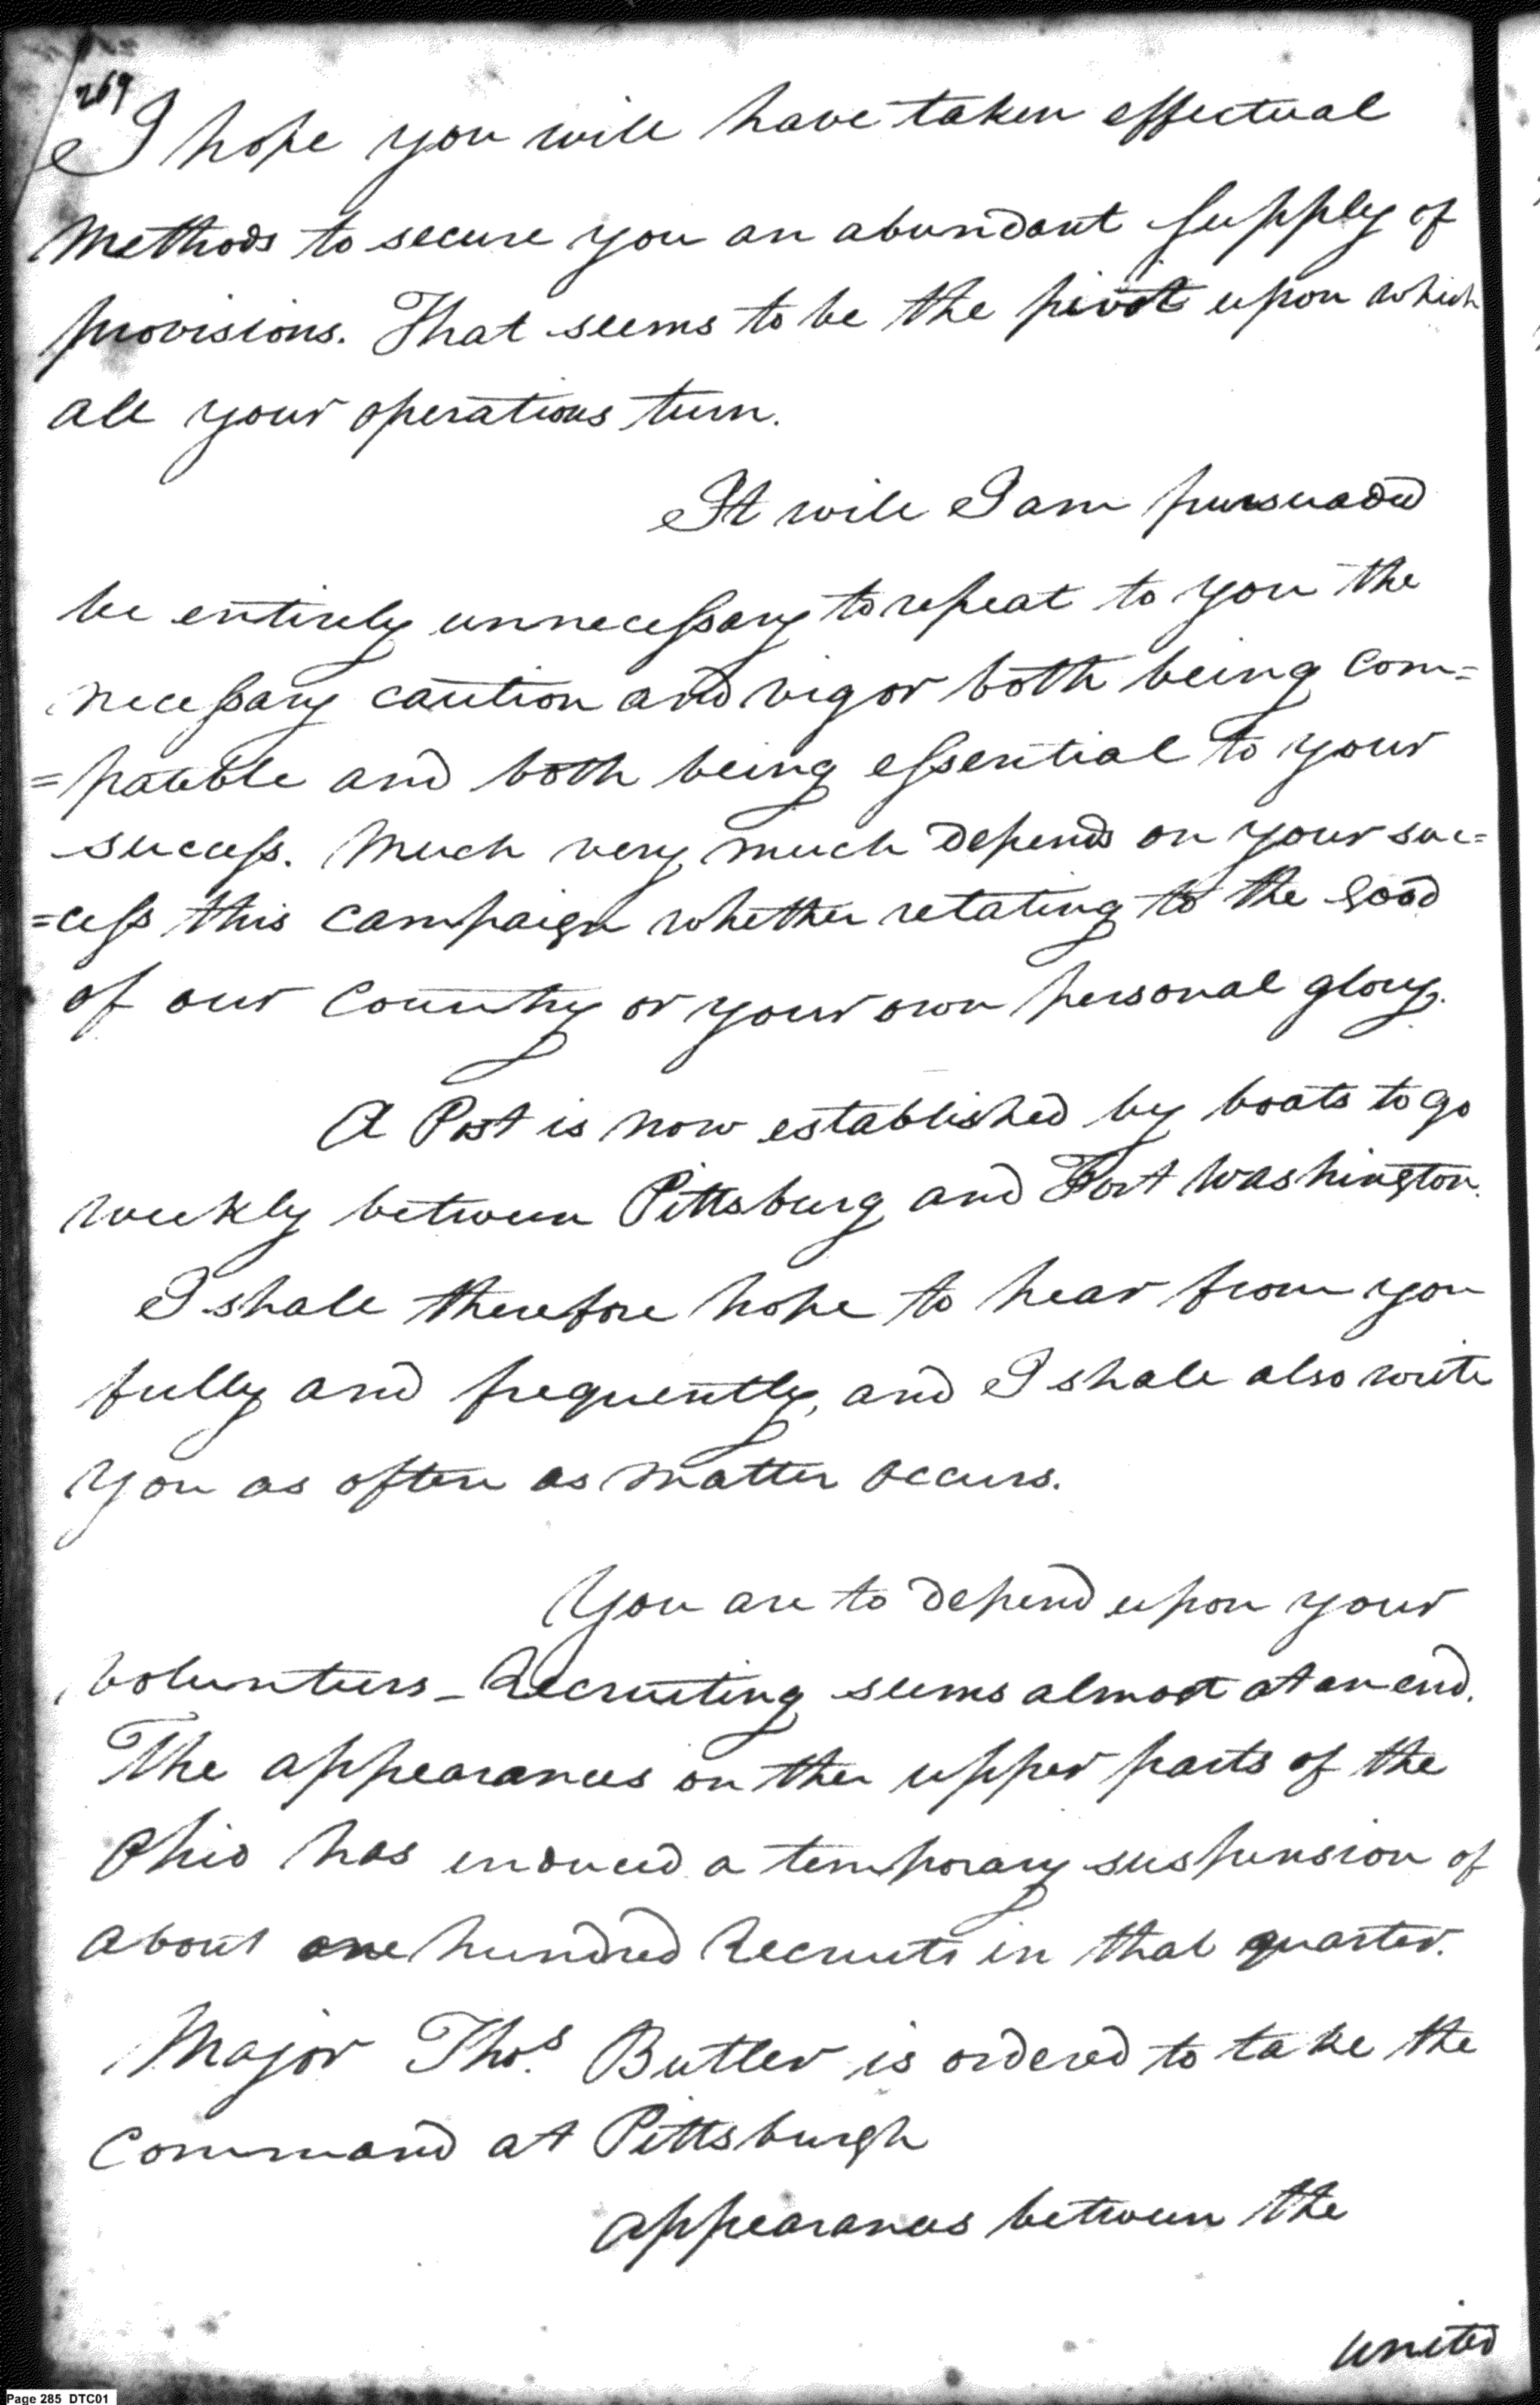 269
I hope you will have taken effectual
Methods to secure you an abundant supply of
provisions. That seems to be the pivot upon which
all your operations turn.
It will I am pursuaded
be entirely unnecessary to repeat to you the
necessary caution and vigor both being com=
=patible and both being essential to your
success. Much very much depends on your suc=
=cess this campaign whether retating to the good
of our Country or your own personal glory.
A Post is now established by boats to go
weekly between Pittsburg and Fort Washington.
I shall therefore hope to hear from you
fully and frequently, and I shall also write
you as often as matter occurs.
You are to depend upon your
volunteers _ Recruiting seems almost at an end.
The appearances on the upper parts of the
Ohio has induced a temporary suspension of
about one hundred Recruits in that quarter.
Major Thos. Butler is ordered to take the
Command at Pittsburgh
appearances between the
united
Page 285 DTC01